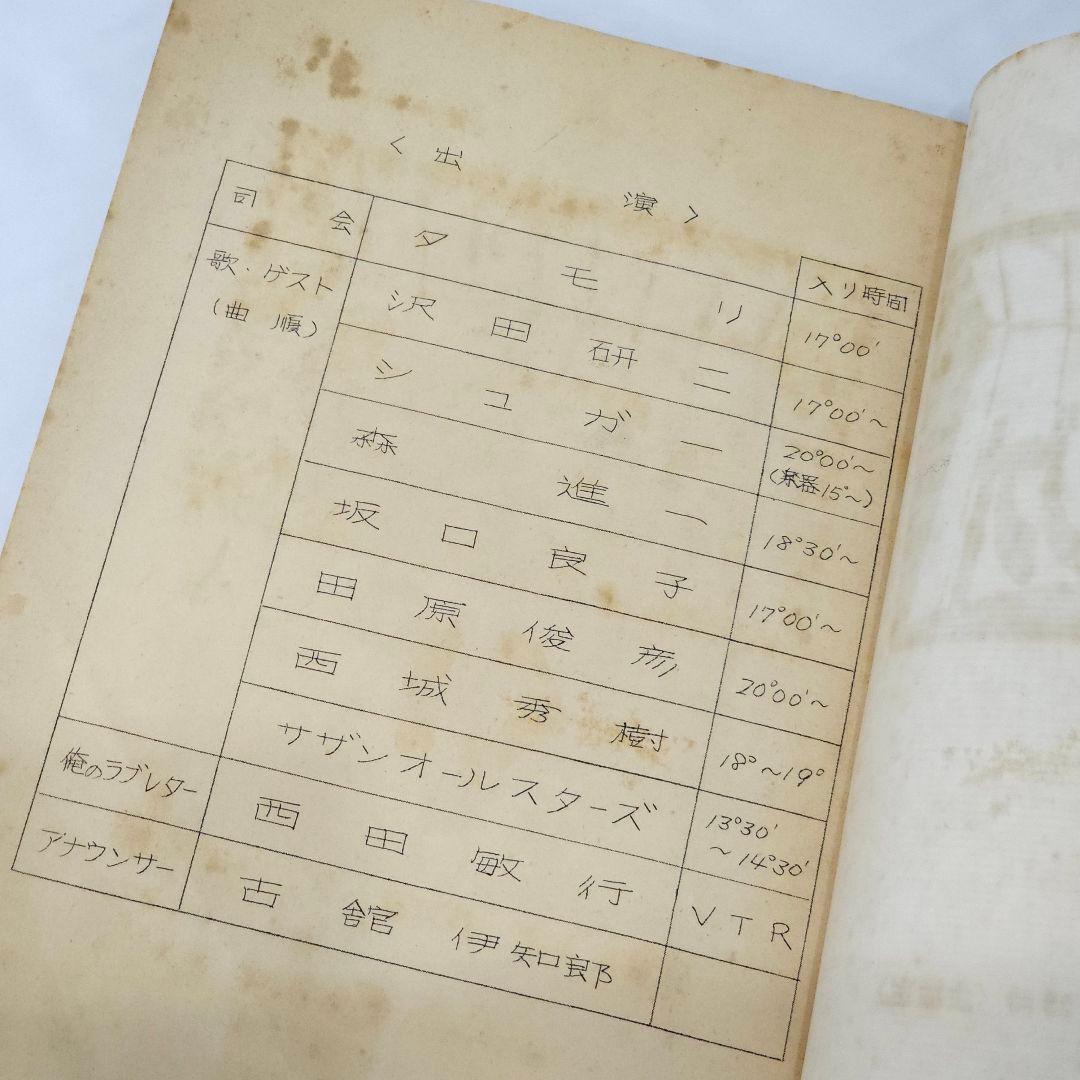 〈出　演〉
入り時間
司会　タモリ　17°00'
歌・ゲスト　沢田研二　17°00'〜
(曲順)
シュガー　20°00'〜
(楽器15°〜)
森進一　18°30'〜
坂口良子　17°00'〜
田原俊彦　20°00'〜
西城秀樹　18°〜19°
サザンオールスターズ　13°30'
〜14°30'
俺のラブレター　西田敏行　VTR
アナウンサー　古舘伊知郎